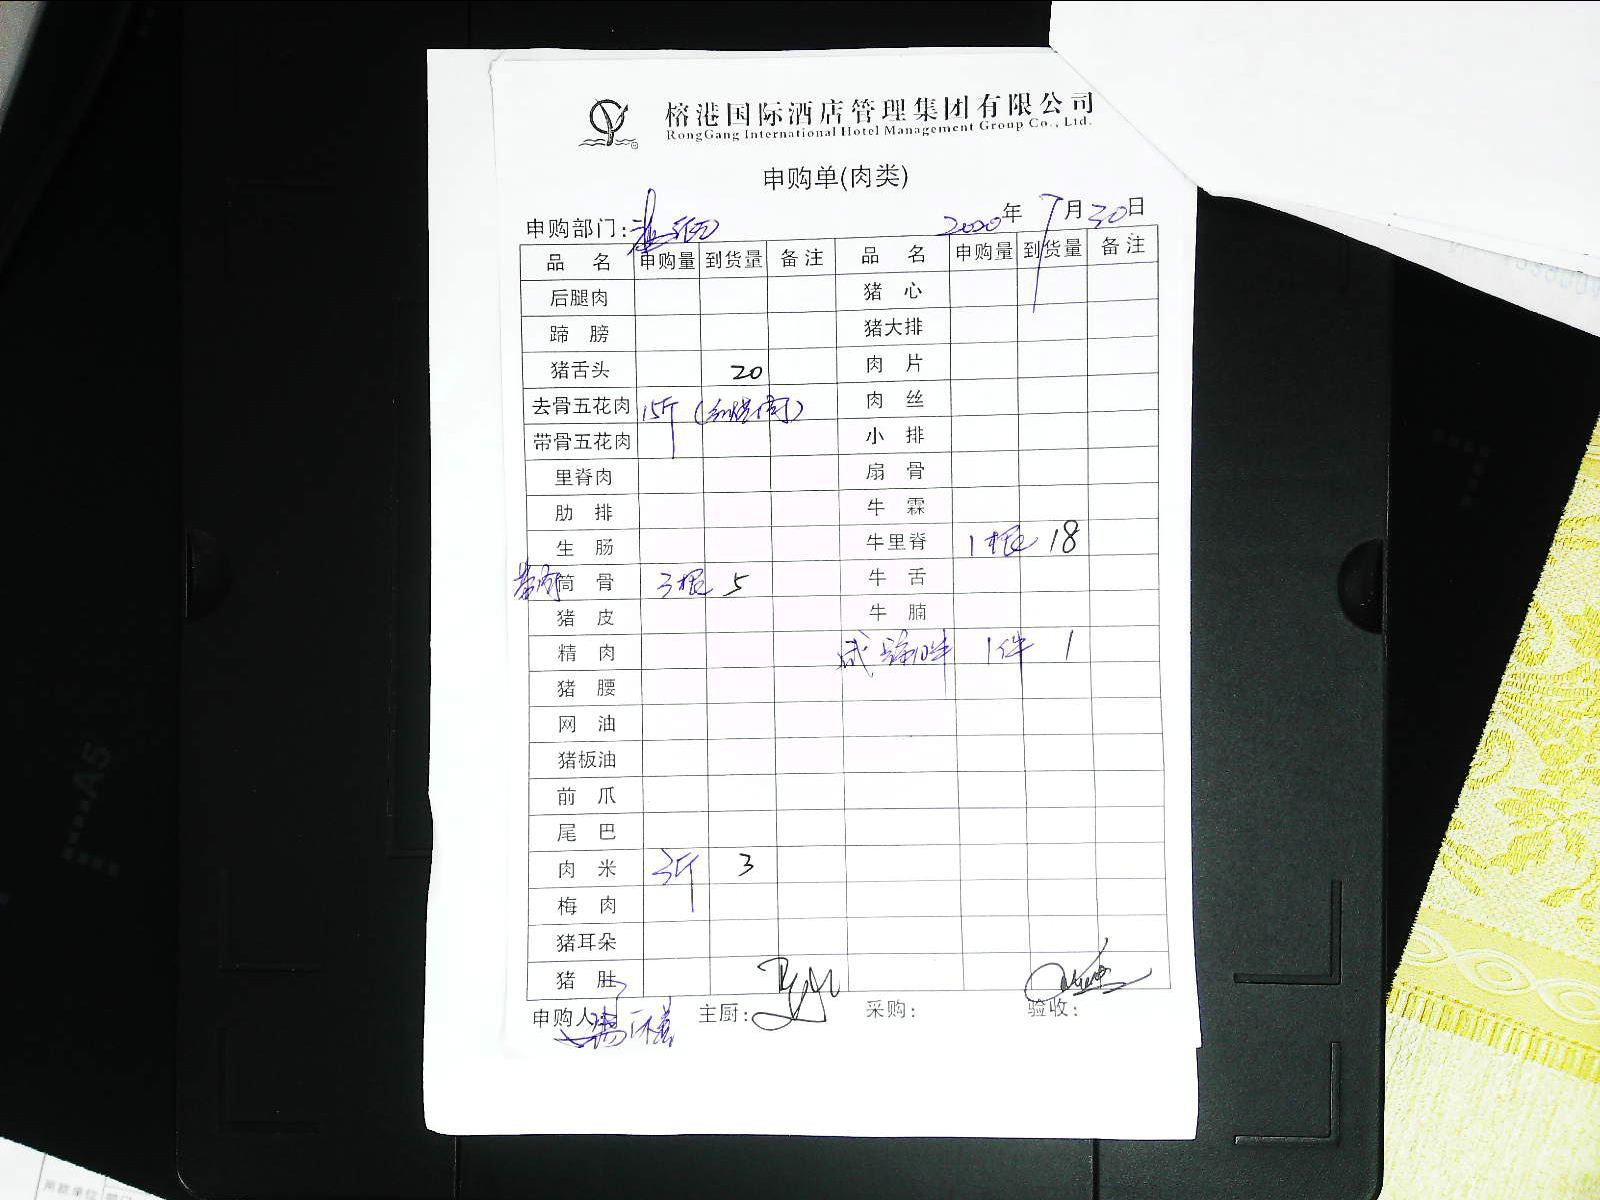 榕港国际酒店管理集团有限公司
RongGang International Hotel Management Group Co., Ltd.
申购单(肉类)
申购部门:
2020年 7月30日
品 名 申购量 到货量 备注 品 名 申购量 到货量 备注
后腿肉 猪 心
蹄 膀 猪大排
猪舌头 20 肉 片
去骨五花肉 15斤 (红烧肉) 肉 丝
带骨五花肉 小 排
里脊肉 扇 骨
肋 排 牛 霖
生 肠 牛里脊 1根 18
带肉筒 骨 3根 5 牛 舌
猪 皮 牛 腩
精 肉 1件 1
猪 腰
网 油
猪板油
前 爪
尾 巴
肉 米 3斤 3
梅 肉
猪耳朵
猪 肚
申购人: 主厨: 采购: 验收:
A5